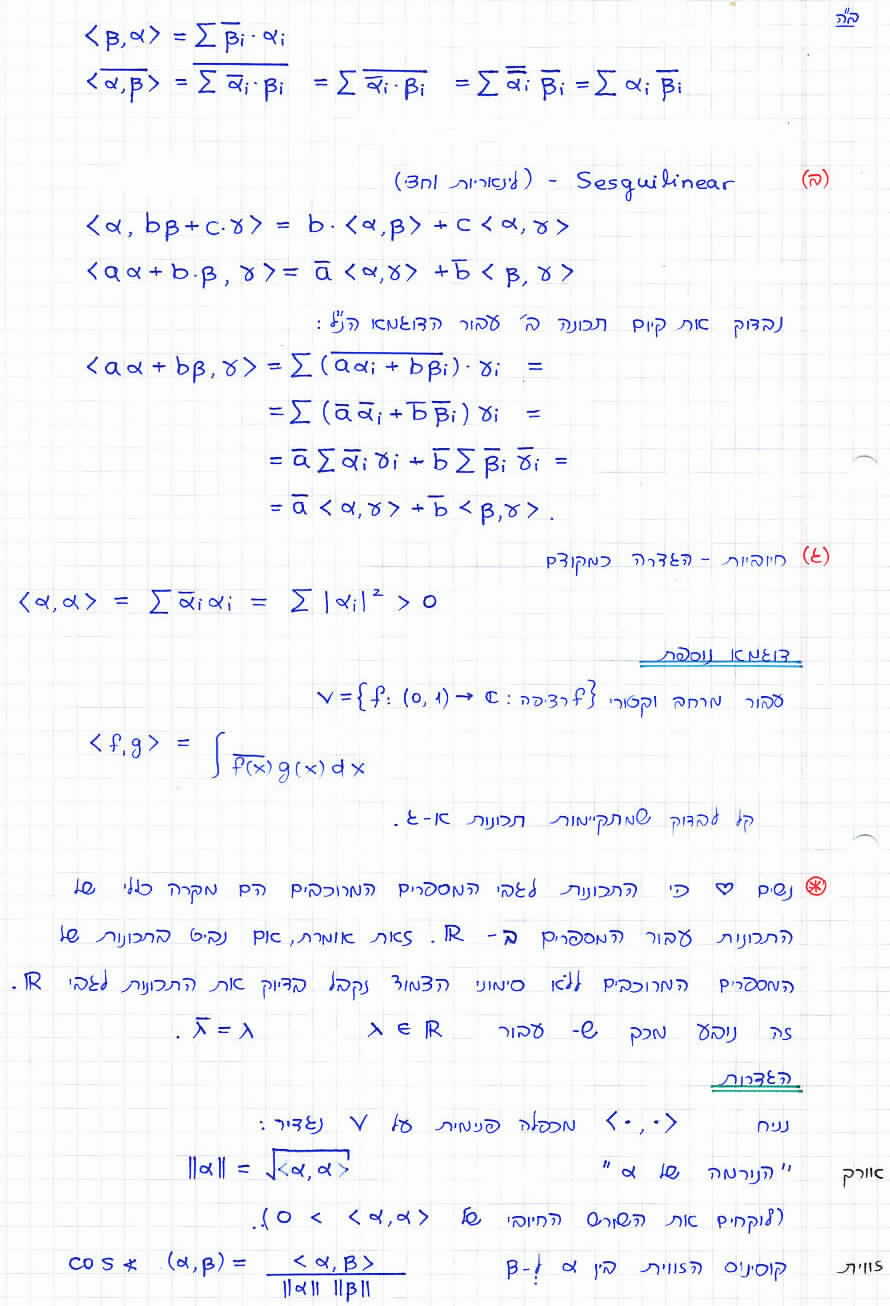 ב"ה
<β,α> = ∑ β̅ᵢ · αᵢ
<α,β>̅ = ∑ α̅ᵢ · βᵢ (overline) = ∑ α̅ᵢ · βᵢ (overline) = ∑ α̿ᵢ β̅ᵢ = ∑ αᵢ β̅ᵢ
(ב) Sesquilinear - (לינאריות וחצי)
<α, bβ + c·γ> = b·<α,β> + c<α,γ>
<aα + b·β, γ> = a̅ <α,γ> + b̅ <β,γ>
נבדוק את קיום תכונה ב' עבור הדוגמא הנ"ל:
<aα + bβ, γ> = ∑ (aαᵢ + bβᵢ)̅ · γᵢ =
= ∑ (a̅ α̅ᵢ + b̅ β̅ᵢ) γᵢ =
= a̅ ∑ α̅ᵢ γᵢ + b̅ ∑ β̅ᵢ γ̅ᵢ =
= a̅ <α,γ> + b̅ <β,γ>.
(ג) חיוביות - הגדרה כמקודם
<α,α> = ∑ α̅ᵢ αᵢ = ∑ |αᵢ|² > 0
דוגמא נוספת
עבור מרחב וקטורי V = {f: (0,1) → ℂ : רציפה f}
<f,g> = ∫ f(x)̅ g(x) dx
קל לבדוק שמתקיימות תכונות א-ג.
⊛ נשים ♡ כי התכונות לגבי המספרים המרוכבים הם מקרה כללי של
התכונות עבור המספרים ב- ℝ. זאת אומרת, אם נביט בתכונות של
המספרים המרוכבים ללא סימוני הצמוד נקבל בדיוק את התכונות לגבי ℝ.
זה ניבע מכך ש- עבור λ ∈ ℝ λ̅ = λ.
הגדרות
נניח <·,·> מכפלה פנימית על V נגדיר:
אורק "הנורמה של α" ||α|| = √<α,α>
(לוקחים את השורש החיובי של <α,α> > 0).
זווית קוסינוס הזווית בין α ל-β cos∢(α,β) = <α,β> / ||α|| ||β||